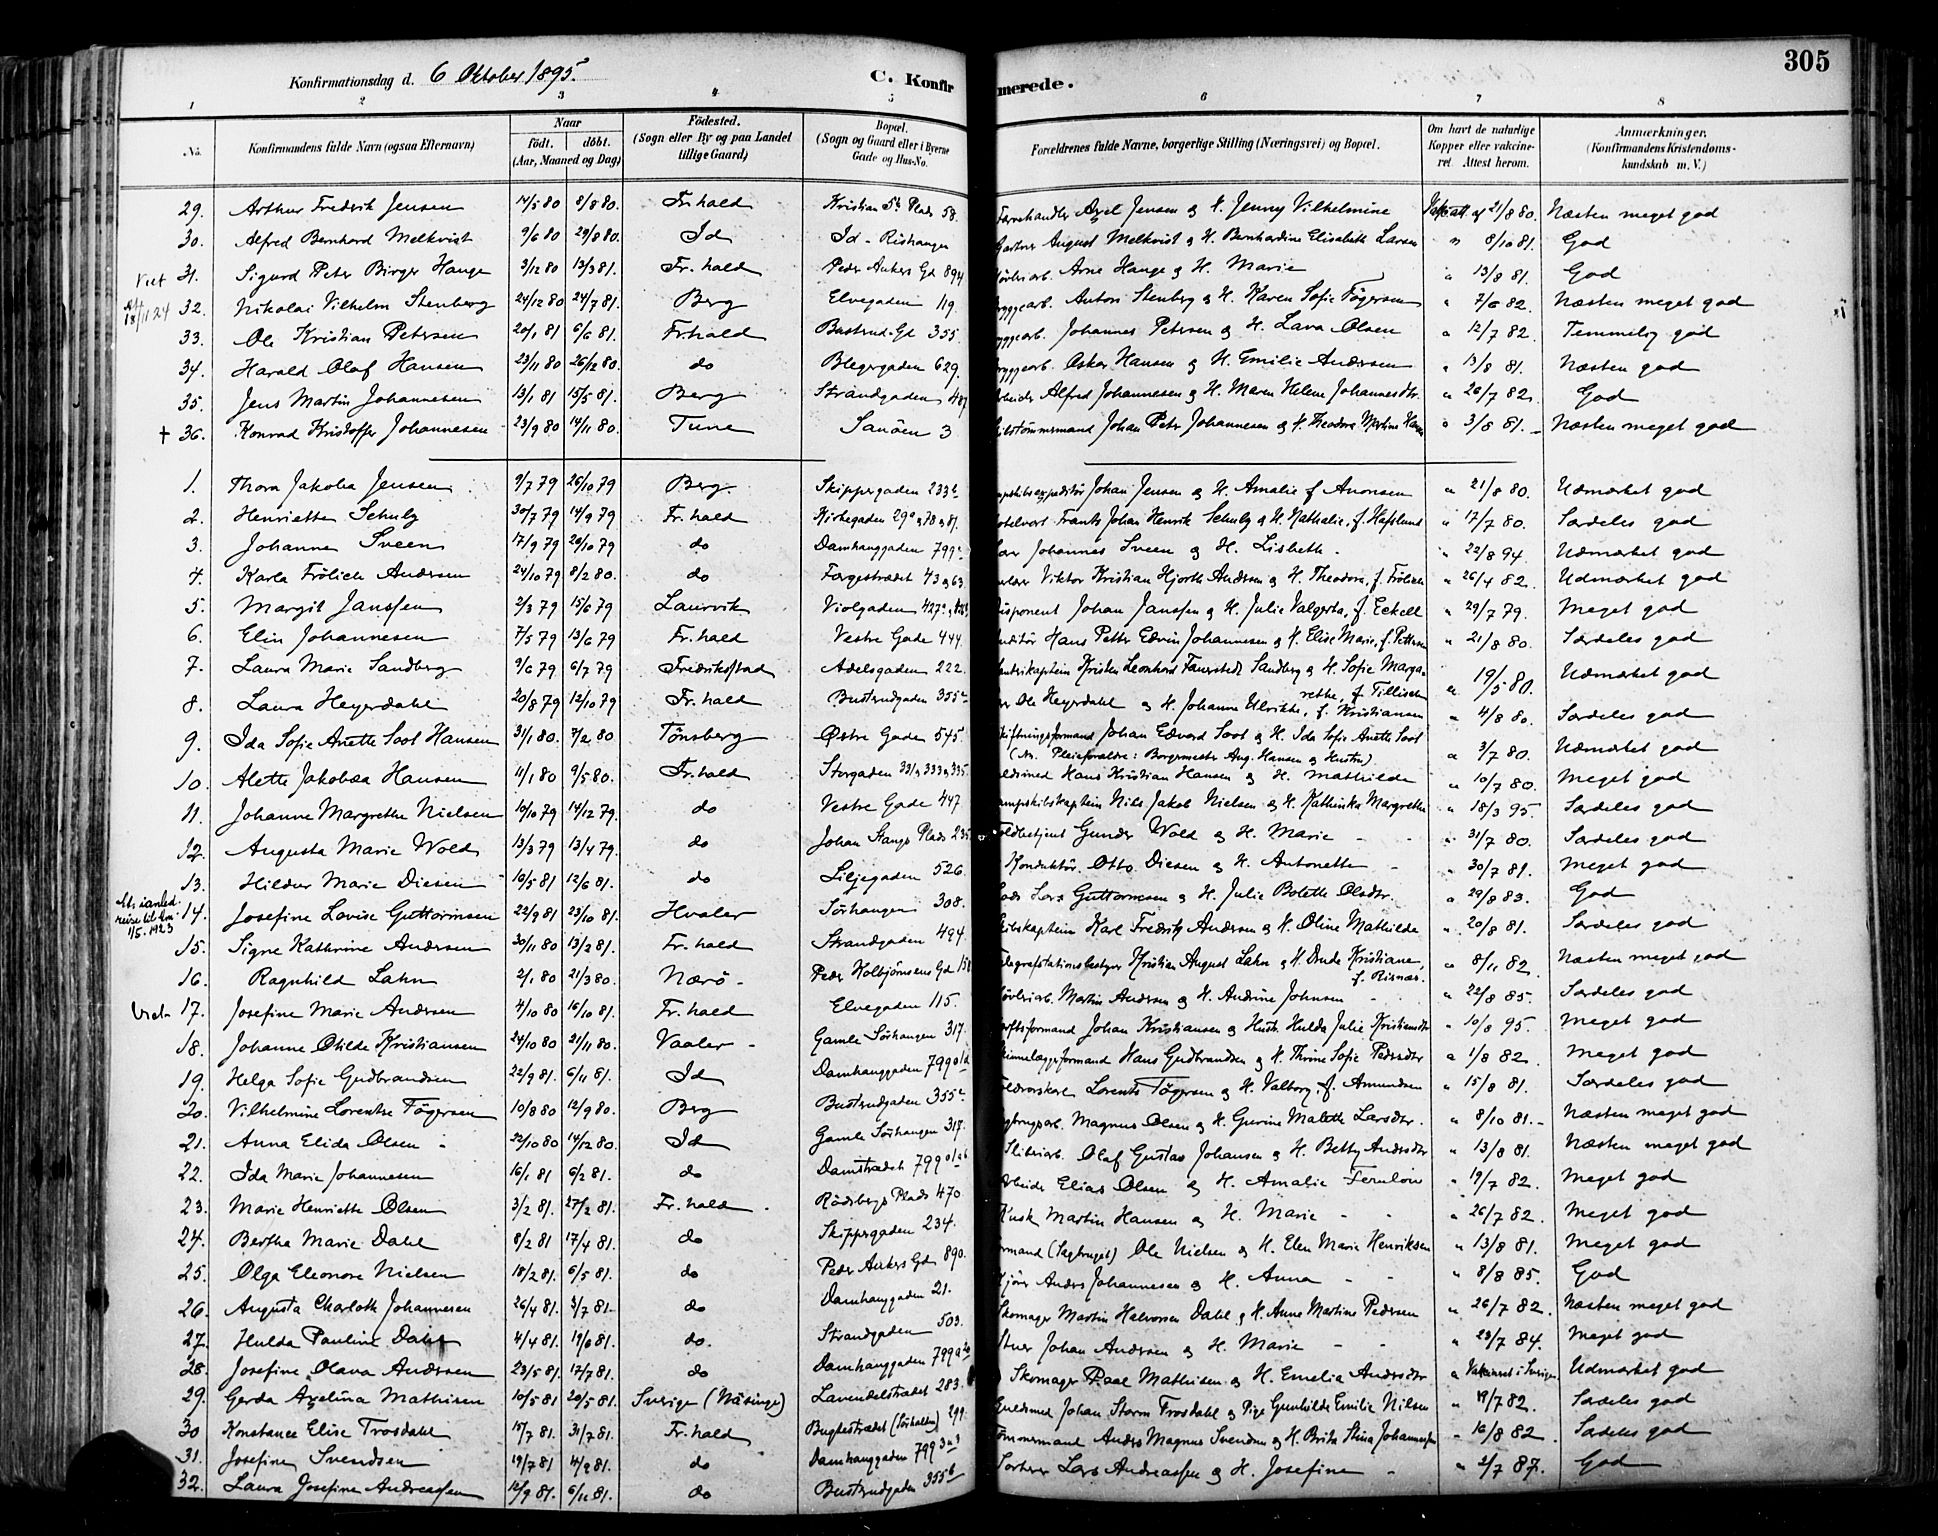 305
Konfirmationsdag d. 6 Oktober 1895.
C. Konfirmerede.
1 2 3 4 5 6 7 8
No. Konfirmandens fulde Navn (ogsaa Efternavn) Naar födt. döbt. (Aar, Maaned og Dag) Födested. (Sogn eller By og paa Landet tillige Gaard) Bopæl. (Sogn og Gaard eller i Byerne Gade og Hus-No. Forældrenes fulde Navne, borgerlige Stilling (Næringsvei) og Bopæl. Om havt de naturlige Kopper eller vakcineret. Attest herom. Anmærkninger. (Konfirmandens Kristendomskundskab m. V.)
29. Arthur Fredrik Jensen 14/5 80 8/8 80. Fr.hald Kristian 5ts Plads 58. Farvehandler Axel Jensen og H. Jenny Vilhelmine 21/8 80. Næsten meget god
30. Alfred Bernhard Melkvist 9/6 80 29/8 80. Id Id - Rishaugen Gartner August Melkvist og H. Bernhardine Elisabeth Larsen " 8/10 81. God
31. Sigurd Peter Birger Hauge 3/12 80 13/3 81. Fr.hald Peder Ankers Gd 894 Arne Hauge og H. Marie " 13/8 81. God
32. Nikolai Vilhelm Stenberg 24/12 80 24/7 81. Berg Elvegaden 119. Bryggearb. Anton Stenberg og H. Karen Sofie Tögersen " 7/6 82. Næsten meget god
33. Ole Kristian Petersen 20/1 81 6/6 81. Fr.hald Bustrud-Gd 355 Bryggearb. Johannes Petersen og H. Lava Olsen " 12/7 82. Temmelig god
34. Harald Olaf Hansen 23/11 80 26/12 80. do Blegegaden 629. Bryggearb. Oskar Hansen og H. Emilie Andersen " 13/8 81. Næsten god
35. Jens Martin Johannesen 13/1 81 15/5 81. Berg Strandgaden Arbeider Alfred Johannesen og H. Maren Helene Johannesdtr. " 26/7 82. God
† 36. Konrad Kristoffer Johannesen 23/9 80 14/11 80. Tune Sanöen 3 Skibstömmermand Johan Peter Johannesen og H. Theodora Martine Hansen " 3/8 81. Næsten meget god
1. Thora Jakoba Jensen 9/7 79 26/10 79 Berg. Skippergaden 233b Dampskibsexpeditör Johan Jensen og H. Amalie f. Aronsen " 21/8 80. Udmærket god
2. Henriette Schulz 30/7 79 14/9 79 Fr.hald Kirkegaden 29a, 78 og 81. Hotelvert Frants Johan Henrik Schulz og H. Nathalie, f. Hafslund " 17/7 80. Særdeles god
3. Johanne Sveen 17/9 79 20/10 79 do Damhauggaden 799 Johannes Sveen og H. Lisbeth. " 22/8 94. Udmærket god
4. Karla Frölich Andersen 24/10 79 8/2 80. do Fargestrædet 43 og 63 Viktor Kristian Hjorth Andersen og H. Theodora, f. Frölich " 26/4 82. Udmærket god
5. Margit Janssen 2/3 79 15/6 79 Laurvik Violgaden 427 Disponent Johan Janssen og H. Julie Valgerda, f. Eckell " 29/7 79. Meget god
6. Elin Johannesen 7/5 79 13/6 79 Fr.hald Vestre Gade 444. Hans Petter Edvin Johannesen og H. Elise Marie, f. Pettersen " 21/8 80. Særdeles god
7. Laura Marie Sandberg 9/6 79 6/7 79 Fredrikstad Adelsgaden 222. Kristen Leonhard Sandberg og H. Sofie Margarethe, f. Tillisch " 19/5 80. Udmærket god
8. Laura Heyerdahl 20/8 79 12/10 79 Fr.hald Bustrudgaden 355 Ole Heyerdahl og H. Johanne Ulrikke, f. Kristiansen " 4/8 80. Særdeles god
9. Ida Sofie Anette Soot Hansen 31/1 80. 7/2 80 Tönsberg Østre Gade 545. Skiftningsformand Johan Edvard Soot og H. Ida Sofie Anette Soot
(An. Pleieforældre: Borgermester Aug. Hansen og Hustru) " 3/7 80. Udmærket god
10. Alette Jakobæa Hansen 11/1 80 9/5 80. Fr.hald Storgaden 331, 333 og 335. Hans Kristian Hansen og H. Mathilde " 10/7 80. Meget god
11. Johanne Margrethe Nielsen 10/10 79 14/12 79. do Vestre Gade 447. Dampskibskaptein Nils Jakob Nielsen og H. Kathinka Margrethe " 18/3 95. Særdeles god
12. Augusta Marie Wold 13/3 79 13/4 79. do Johan Stangs Plads 235. Toldbetjent Gunder Wold og H. Marie " 31/7 80. Særdeles god
13. Hildur Marie Diesen 10/5 81 12/6 81. do Liljegaden 526. Konduktör Otto Diesen og H. Antonette " 30/7 81. Meget god
1/5. 1923 14. Josefine Lovise Guttormsen 22/9 81 23/10 81. Hvaler Sörhaugen 308. Lods Lars Guttormsen og H. Julie Bolette Olsdtr. " 29/8 83. God
15. Signe Kathrine Andersen 30/11 80 13/2 81. Fr.hald Strandgaden 494. Skibskaptein Karl Fredrik Andersen og H. Oline Mathilde " 20/8 81. Særdeles god
16. Ragnhild Lahn 2/1 80 21/3 80. Nærö Peder Kolbjörnsens Gd Telegrafstationsbestyrer Kristian August Lahn og H. Dude Kristiane, f. Risnæs. " 8/11 82. Næsten meget god
17. Josefine Marie Andersen 4/10 80 16/10 81. Fr.hald Elvegaden 115. Martin Andersen og H. Andrine Johnsen " 22/8 85. Særdeles god
18. Johanne Otilde Kristiansen 24/10 80 21/11 80. Vaaler Gamle Sörhaugen 317. Johan Kristiansen og Hustr. Hulda Julie Kristiansdtr " 10/8 95. Meget god
19. Helga Sofie Gudbrandsen 22/9 81. 6/11 81. Id Damhauggaden 799 Skinnelæggerformand Hans Gudbrandsen og H. Thrine Sofie Pedersdtr " 1/8 82. Meget god
20. Vilhelmine Lorentse Tögersen 10/8 80 12/9 80. Berg Bustrudgaden 355 Lorents Tögersen og H. Valborg, f. Amundsen " 15/8 81. Særdeles god
21. Anna Elida Olsen 22/10 80 14/12 80. Id Gamle Sörhaugen 317. Magnus Olsen og H. Gurine Malette Larsdtr. " 8/10 81. Næsten meget god
22. Ida Marie Johannesen 16/1 81 6/2 81. do Damstrædet 799 Sliberiarb. Olaf Gustav Johansen og H. Betty Andersdtr " 13/8 81. Næsten meget god
23. Marie Henriette Olsen 3/2 81. 27/2 81. Fr.hald Rödsbergs Plads 470. Arbeider Elias Olsen og H. Amalie Fernlöw " 19/7 82. Meget god
24. Bertha Marie Dahl 8/2 81 17/4 81. do Skippergaden 234. Kusk Martin Hansen og H. Marie " 26/7 82. Meget god
25. Olga Eleonore Nielsen 18/2 81. 6/5 81. do Peder Ankers Gd 890. Formand (Sagbruget) Ole Nielsen og H. Elen Marie Henriksen " 13/8 81. Meget god
26. Augusta Charlotte Johannesen 26/4 81. 3/7 81. do Damhauggaden 21. Anders Johannesen og H. Anna " 8/8 85. God
27. Hulda Pauline Dahl 4/4 81. 19/6 81. do. Strandgaden 503. Skomager Martin Halvorsen Dahl og H. Anne Martine Pedersen " 26/7 82. Næsten meget god
28. Josefine Olava Andersen 23/5 81. 17/7 81. do Damhauggaden 799 Johan Andersen og H. Marie " 23/7 84. Meget god
29. Gerda Axelina Mathisen 10/5 81 20/5 81. Sverige (Näsinge) Lavendelstrædet 283. Skomager Paal Mathisen og H. Emelia Andersdtr " Vakcineret i Sverige Udmærket god
30 Konstance Elise Trosdahl 15/7 81. 31/7 81. Fr.hald Bugdestrædet (Sörhalden) 299. Guldsmed Johan Storm Trosdahl og Pige Gunhilde Emilie Nilsen " 19/7 82. Særdeles god
31. Josefine Svendsen 19/7 81 4/9 81. do Damhauggaden 799 Tömmermand Anders Magnus Svendsen og H. Brita Stina Johannesen " 16/8 82. Særdeles god
32. Laura Josefine Andreassen 12/9 81. 6/11 81. do Bustrudgaden 355b Sorterer Lars Andreassen og H. Josefine " 2/7 87. God